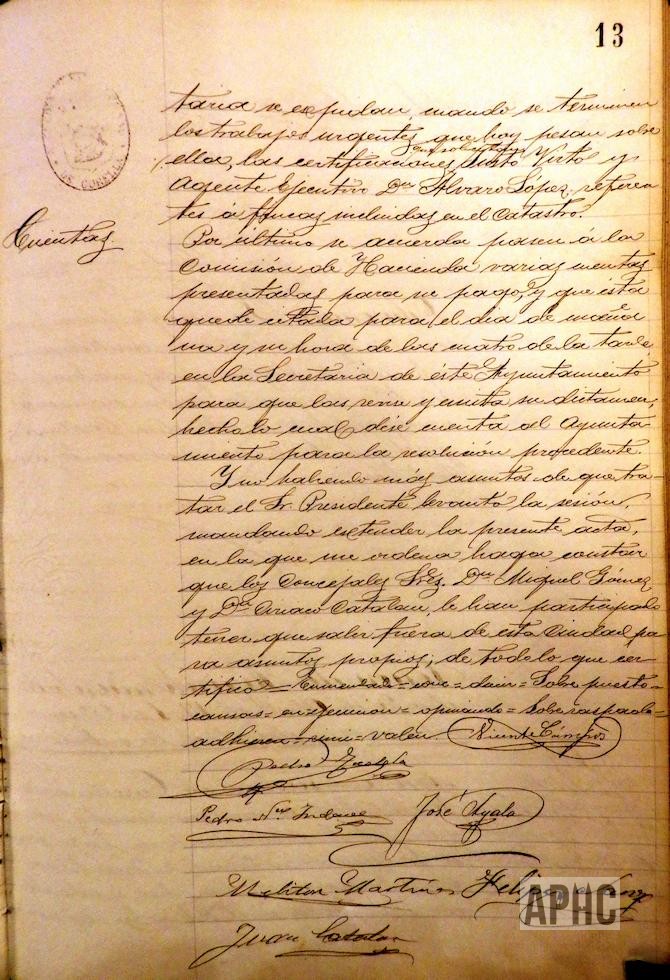 13
taria se expidan, cuando se terminen
los trabajos urgentes que hoy pesan sobre
ella, las certificaciones Virto y
Agente Ejecutivo Dn Alvaro López, referen
tes á fincas incluidas en el Catastro.
Cuentas
Por último se acuerda pasen á la
Comisión de Hacienda varias cuentas
presentadas para su pago, y que ésta
quede citada para el dia de maña
na y su hora de las cuatro de la tarde
en la Secretaria de éste Ayuntamiento
para que las revise y emita su dictamen,
hecho lo cual dese cuenta al Ayunta
miento para la resolución procedente.
Y no habiendo más asuntos de que tra
tar el Sr. Presidente levantó la sesión,
mandando extender la presente acta,
en la que me ordena haga constar
que los Concejales Sres. Dn Miguel Gómez
y Dn Ciriaco Catalan le han participado
tener que salir fuera de esta Ciudad pa
ra asuntos propios; de todo lo que cer
tifico = Enmendado = = = Sobre puesto
causas = en ejecución = opinando = Sobre raspado
= = valen.
Pedro
Pedro José Ayala
Meliton Martínez Felipe
Juan Catalan
APHC